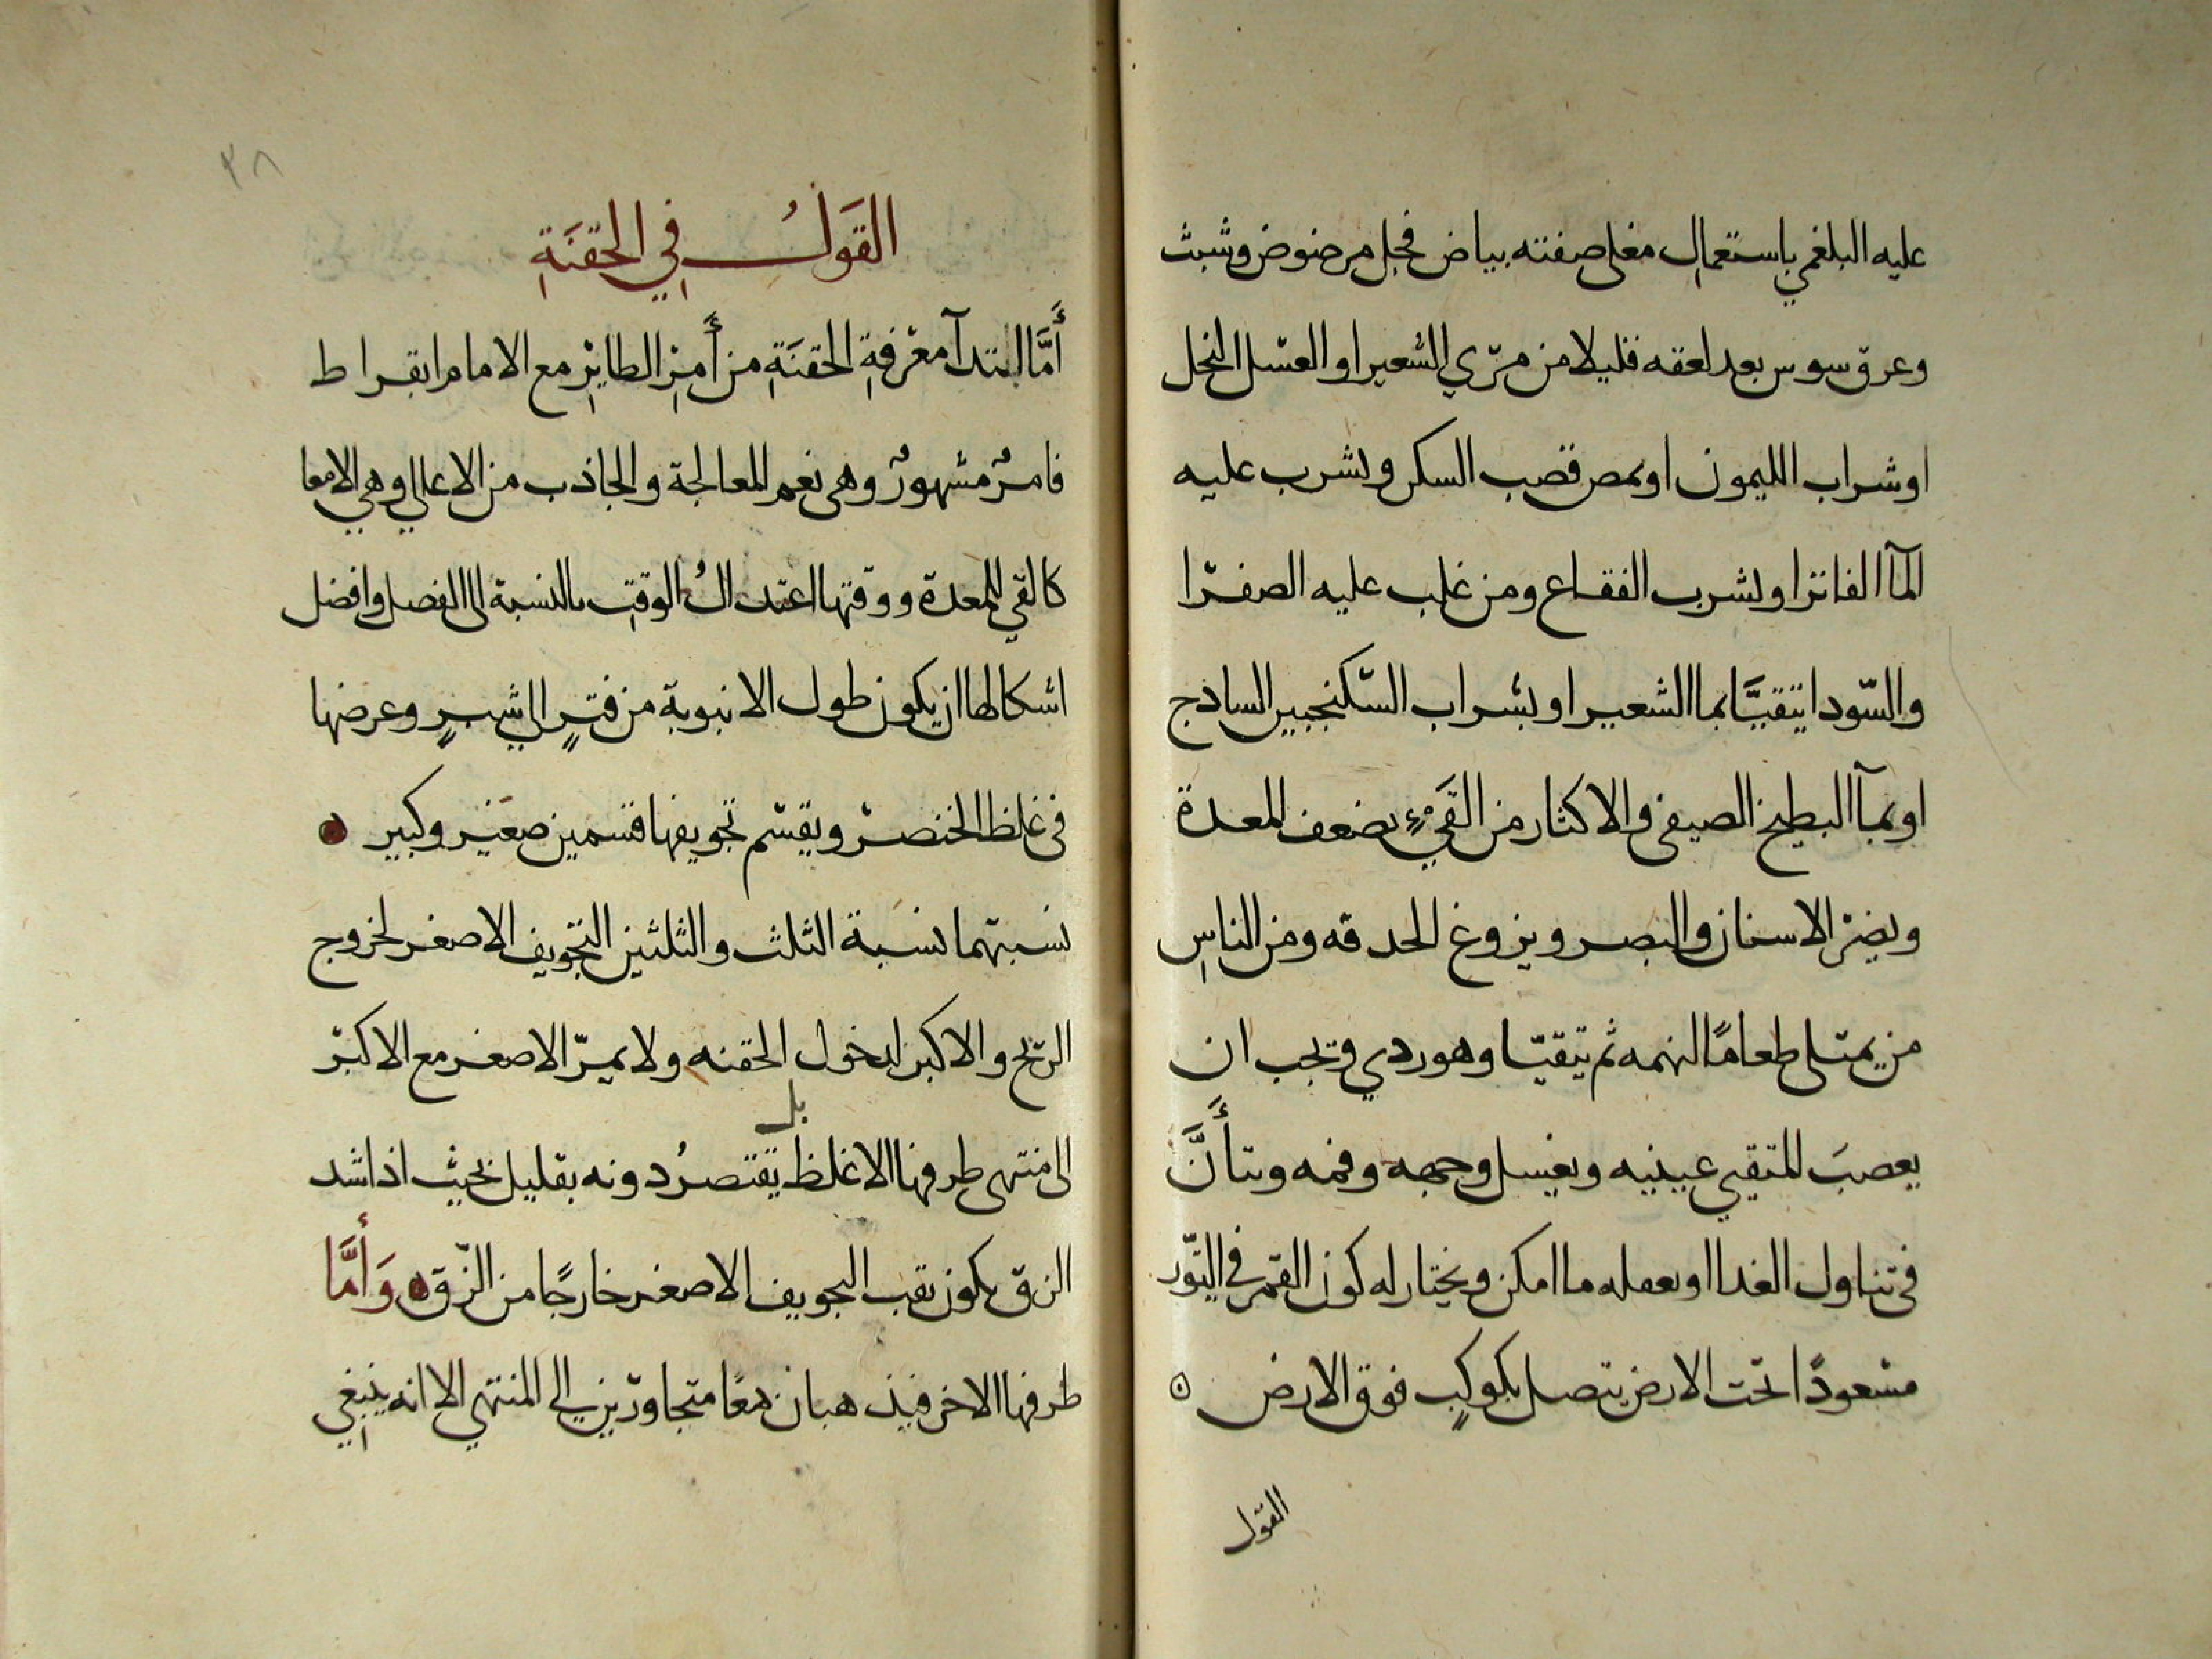 عليه البلغم باستعمال مغلي صفته بياض فجل مرضوض وشبث
وعرق سوس بعد لعقه قليلا من مرّي الشعير او العسل النحل
او شراب الليمون او يمص قصب السكر ويشرب عليه
المآ الفاتر او يشرب الفقاع ومن غلب عليه الصفرا
والسّودا يتقيَّا بما الشعير او بشراب السّكنجبير السادج
او بمآ البطيخ الصيفى والاكثار من القَيْءِ يضعف المعدة
ويضر الاسنان والبصر ويزوغ الحدقه ومن الناسِ
من يمتلى طعامًا لنهمه ثم يتقيّا وهو ردي ويجب ان
يعصبَ المتقيى عينيه ويغسل وجهه وفمه ويتأنَّ
فى تناول الغدا او بعمله ما امكن ويختار له كون القمر في الثور
مسعودًا تحت الارض يتصل بكوكبٍ فوق الارض ٥
القول
٣٨
القَولُ في الحقنَةِ
أَمَّا ابتدآ معرفةِ الحقنَةِ من أَمرِ الطائِر مع الامام ابقراط
فامرٌ مشهورٌ وهى نعم المعالجة والجاذب من الاعالي وهي الامعا
كالقي للمعدة ووقتها اعتدالُ الوقتِ بالنسبة الى الفصل وافضل
اشكالها ان يكون طول الانبوبة من فترٍ الى شبرٍ وعرضها
فى غلظ الخنصر ويقسم تجويفها قسمين صغير وكبير ٥
نسبتهما نسبة الثلث والثلثين التجويف الاصغر لخروج
الريح والاكبر لدخول الحقنه ولا يمرّ الاصغر مع الاكبر
بل
الى منتهى طرفها الاغلظ يقتصرُ دونه بقليل بحيث اذا شد
الزق يكون ثقب التجويف الاصغر خارجًا من الزق ٥ وَأَمَّا
طرفها الاخر فيذهبان معًا متجاورين الى المنتهي الا انه ينبغي